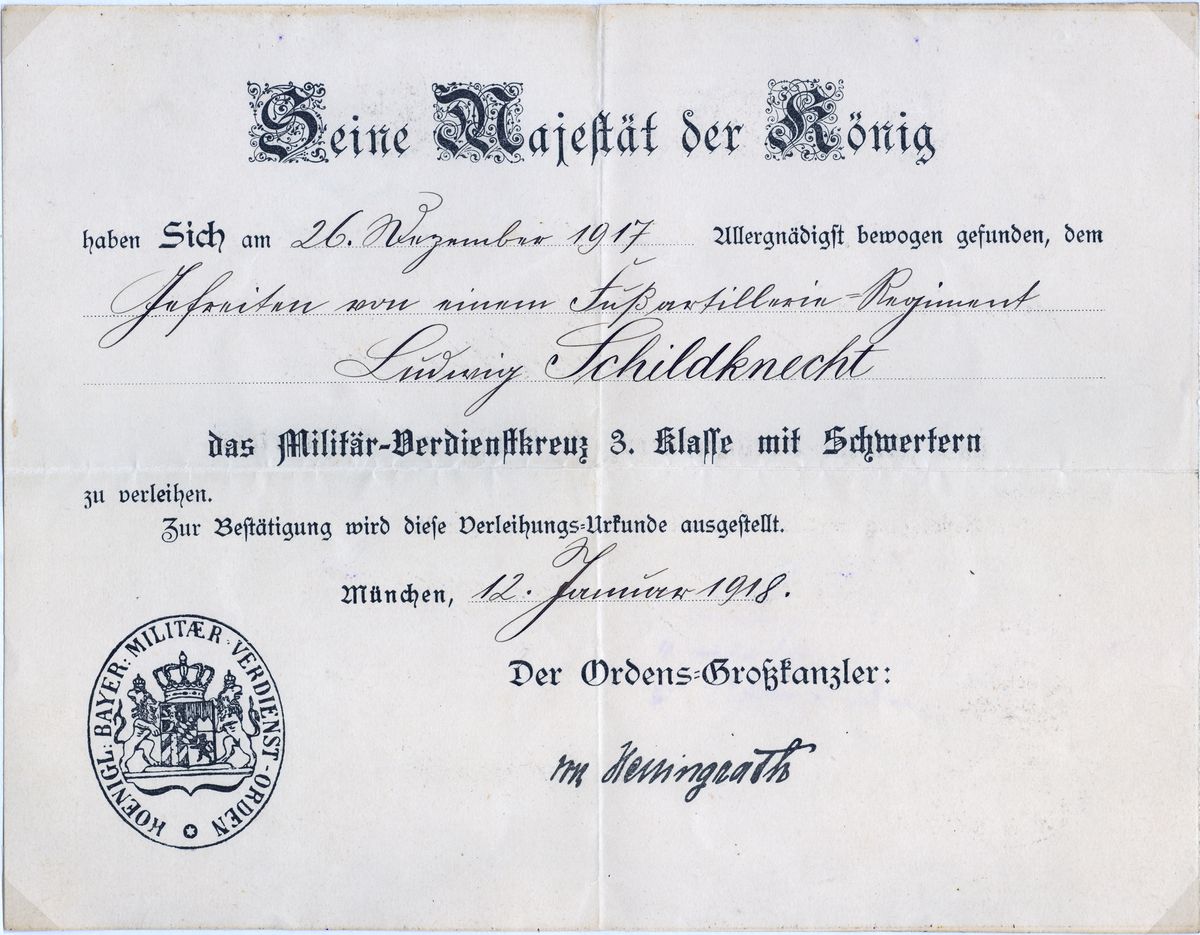 Seine Majestät der König
haben Sich am 26. Dezember 1917 Allergnädigst bewogen gefunden, dem
Gefreiten von einem Fußartillerie=Regiment
Ludwig Schildknecht
das Militär-Verdienstkreuz 3. Klasse mit Schwertern
zu verleihen.
Zur Bestätigung wird diese Verleihungs=Urkunde ausgestellt.
München, 12. Januar 1918.
Der Ordens=Großkanzler:
KOENIGL: BAYER: MILITÆR · VERDIENST - ORDEN